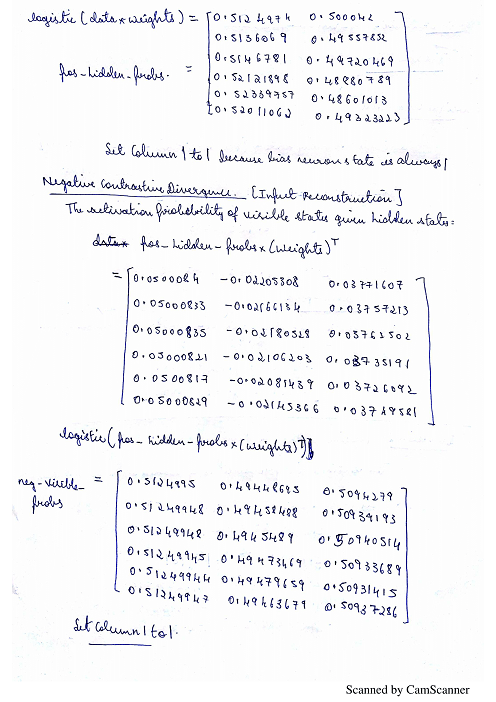 logistic (data * weights) = [0.5124974 0.500042
0.5136069 0.49557852
pos_hidden_probs. = 0.5146781 0.49720469
0.52121898 0.48880789
0.52339757 0.48601013
0.52011062 0.49323223]
Set Column 1 to 1 because bias neuron state is always 1
Negative Contrastive Divergence. [Input Reconstruction]
The activation probability of visible states given hidden states =
pos_hidden_probs × (weights)ᵀ
= [0.0500084 -0.02205308 0.03771607
0.05000833 -0.02166134 0.03757213
0.05000835 -0.02180528 0.03763502
0.05000821 -0.02106203 0.03735191
0.0500817 -0.02081439 0.03726092
0.05000829 -0.02145366 0.03749581]
logistic (pos_hidden_probs × (weights)ᵀ)
neg_visible_probs = [0.5124995 0.49448695 0.5094279
0.51249948 0.49458488 0.50939193
0.51249948 0.4945489 0.50940514
0.51249945 0.49473469 0.50933689
0.51249944 0.49479659 0.50931415
0.51249947 0.49463679 0.50937286]
Set Column 1 to 1.
Scanned by CamScanner